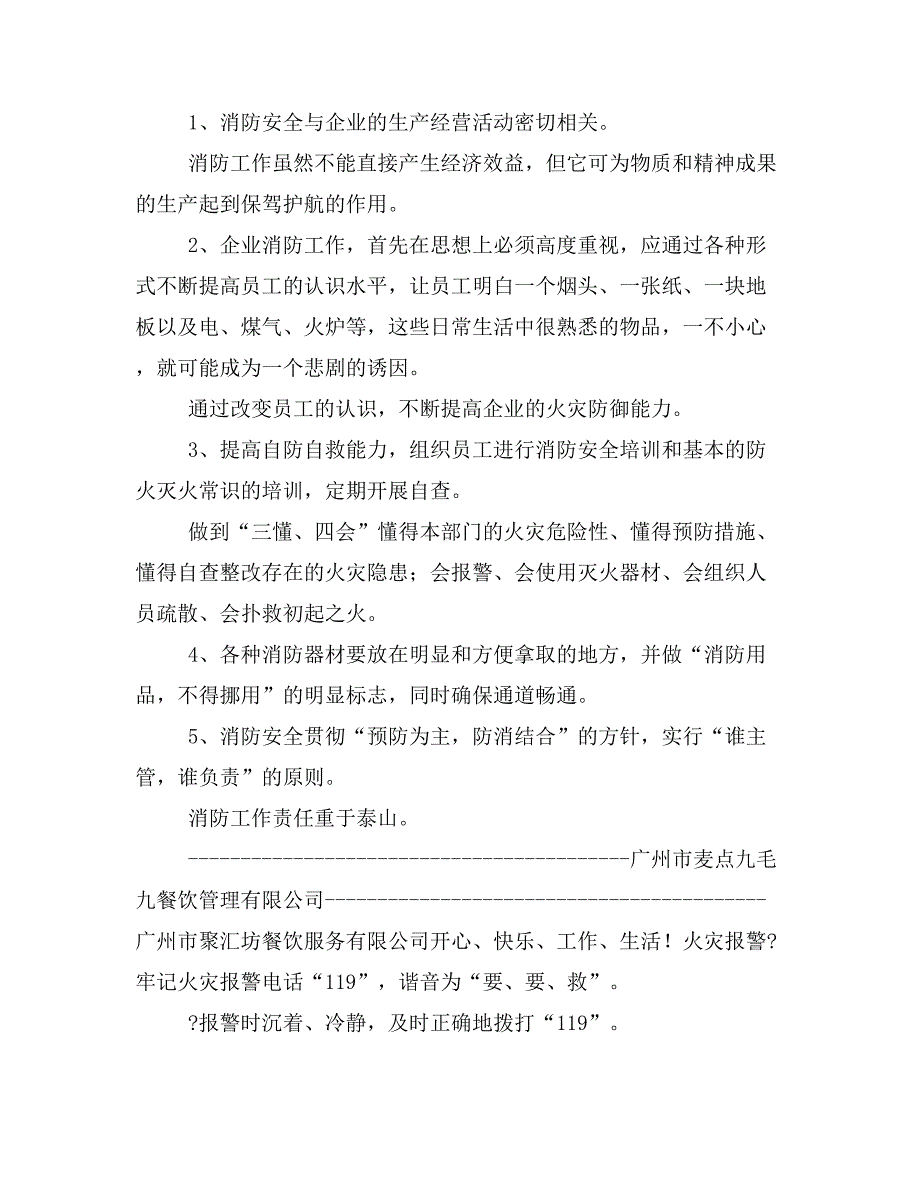 1、消防安全与企业的生产经营活动密切相关。
消防工作虽然不能直接产生经济效益，但它可为物质和精神成果
的生产起到保驾护航的作用。
2、企业消防工作，首先在思想上必须高度重视，应通过各种形
式不断提高员工的认识水平，让员工明白一个烟头、一张纸、一块地
板以及电、煤气、火炉等，这些日常生活中很熟悉的物品，一不小心
，就可能成为一个悲剧的诱因。
通过改变员工的认识，不断提高企业的火灾防御能力。
3、提高自防自救能力，组织员工进行消防安全培训和基本的防
火灭火常识的培训，定期开展自查。
做到“三懂、四会”懂得本部门的火灾危险性、懂得预防措施、
懂得自查整改存在的火灾隐患；会报警、会使用灭火器材、会组织人
员疏散、会扑救初起之火。
4、各种消防器材要放在明显和方便拿取的地方，并做“消防用
品，不得挪用”的明显标志，同时确保通道畅通。
5、消防安全贯彻“预防为主，防消结合”的方针，实行“谁主
管，谁负责”的原则。
消防工作责任重于泰山。
------------------------------------------广州市麦点九毛
九餐饮管理有限公司------------------------------------------
广州市聚汇坊餐饮服务有限公司开心、快乐、工作、生活！火灾报警?
牢记火灾报警电话“119”，谐音为“要、要、救”。
?报警时沉着、冷静，及时正确地拨打“119”。